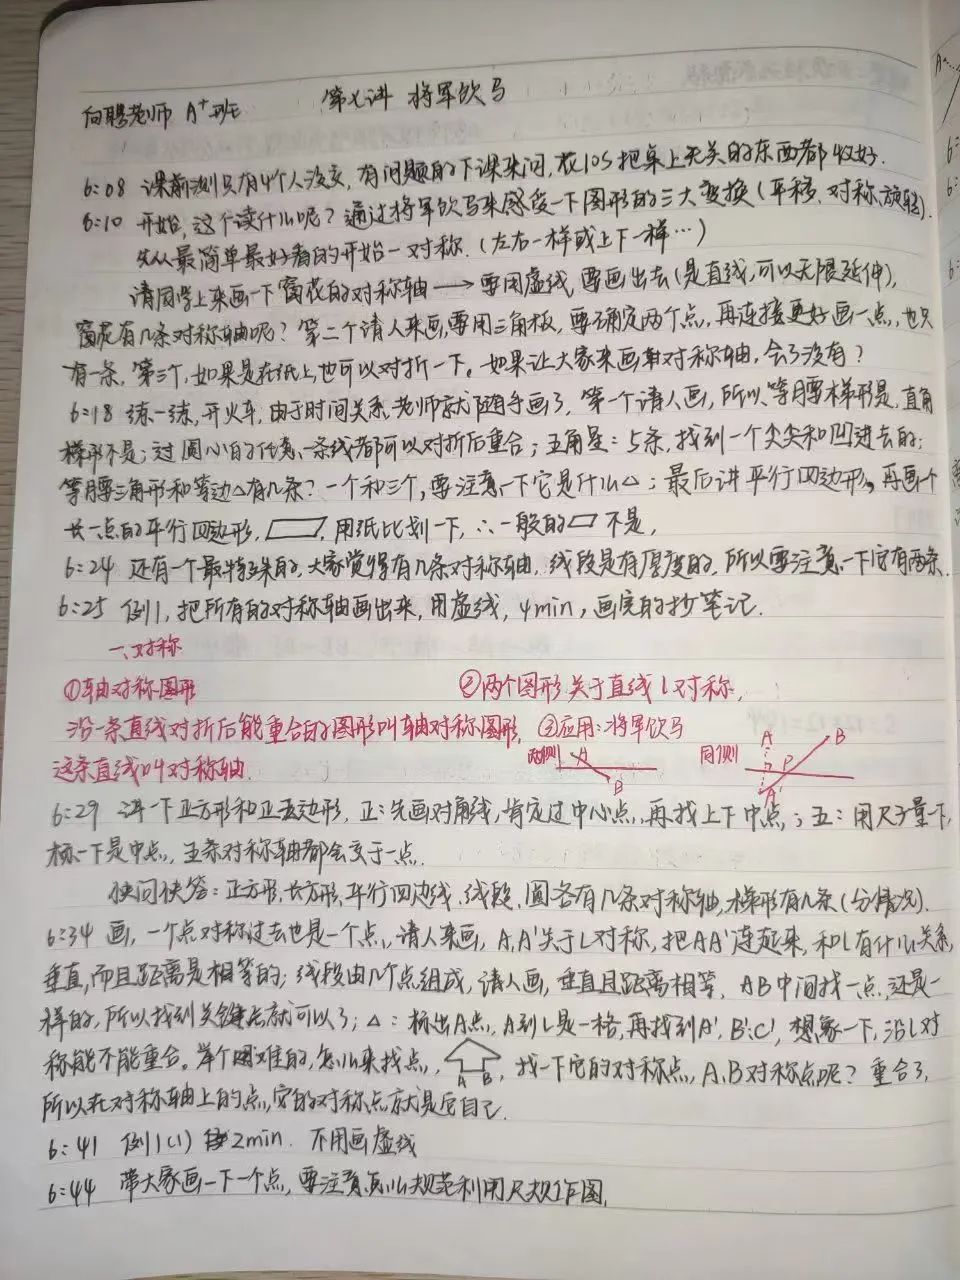 向聘老师 A⁺班 第七讲 将军饮马
6:08 课前测只有4个人没交,有问题的下课来问,花10s把桌上无关的东西都收好.
6:10 开始,这个读什么呢?通过将军饮马来感受一下图形的三大变换(平移、对称、旋转).
先从最简单最好看的开始—对称.(左右一样或上下一样…)
请同学上来画一下窗花的对称轴→要用虚线,要画出去(是直线,可以无限延伸),
窗花有几条对称轴呢?第二个请人来画,要用三角板,要确定两个点,再连接更好画一点,也只
有一条,第三个,如果是在纸上,也可以对折一下。如果让大家来画对称轴,会了没有?
6:18 练一练,开火车,由于时间关系,老师就随手画了,第一个请人画,所以等腰梯形是,直角
梯形不是;过圆心的任意一条线都可以对折后重合;五角星:5条,找到一个尖尖和凹进去的;
等腰三角形和等边△有几条?一个和三个,要注意一下它是什么△;最后讲平行四边形,再画个
长一点的平行四边形,▱,用纸比划一下,∴一般的▱不是,
6:24 还有一个最特殊的,大家觉得有几条对称轴,线段是有厚度的,所以要注意一下它有两条.
6:25 例1,把所有的对称轴画出来,用虚线,4min,画完的抄笔记.
一、对称
①轴对称图形 ②两个图形关于直线l对称,
沿一条直线对折后能重合的图形叫轴对称图形, ③应用:将军饮马
这条直线叫对称轴. 两侧 A B 同侧 A B P A'
6:29 讲一下正方形和正五边形,正:先画对角线,肯定过中心点,再找上下中点;五:用尺子量一下,
标一下是中点,五条对称轴都会交于一点.
快问快答:正方形,长方形,平行四边线,线段,圆各有几条对称轴,梯形有几条(分情况).
6:34 画,一个点对称过去也是一个点,请人来画,A,A'关于L对称,把AA'连起来,和l有什么关系,
垂直,而且距离是相等的;线段由几个点组成,请人画,垂直且距离相等,AB中间找一点,还是一
样的,所以找到关键点就可以了;△:标出A点,A到L是一格,再找到A',B',C',想象一下,沿L对
称能不能重合。举个困难的,怎么来找点, A B,找一下它的对称点,A,B对称点呢?重合了,
所以在对称轴上的点,它的对称点就是它自己.
6:41 例1(1) 2min. 不用画虚线
6:44 带大家画一下一个点,要注意怎么规范利用尺规作图,